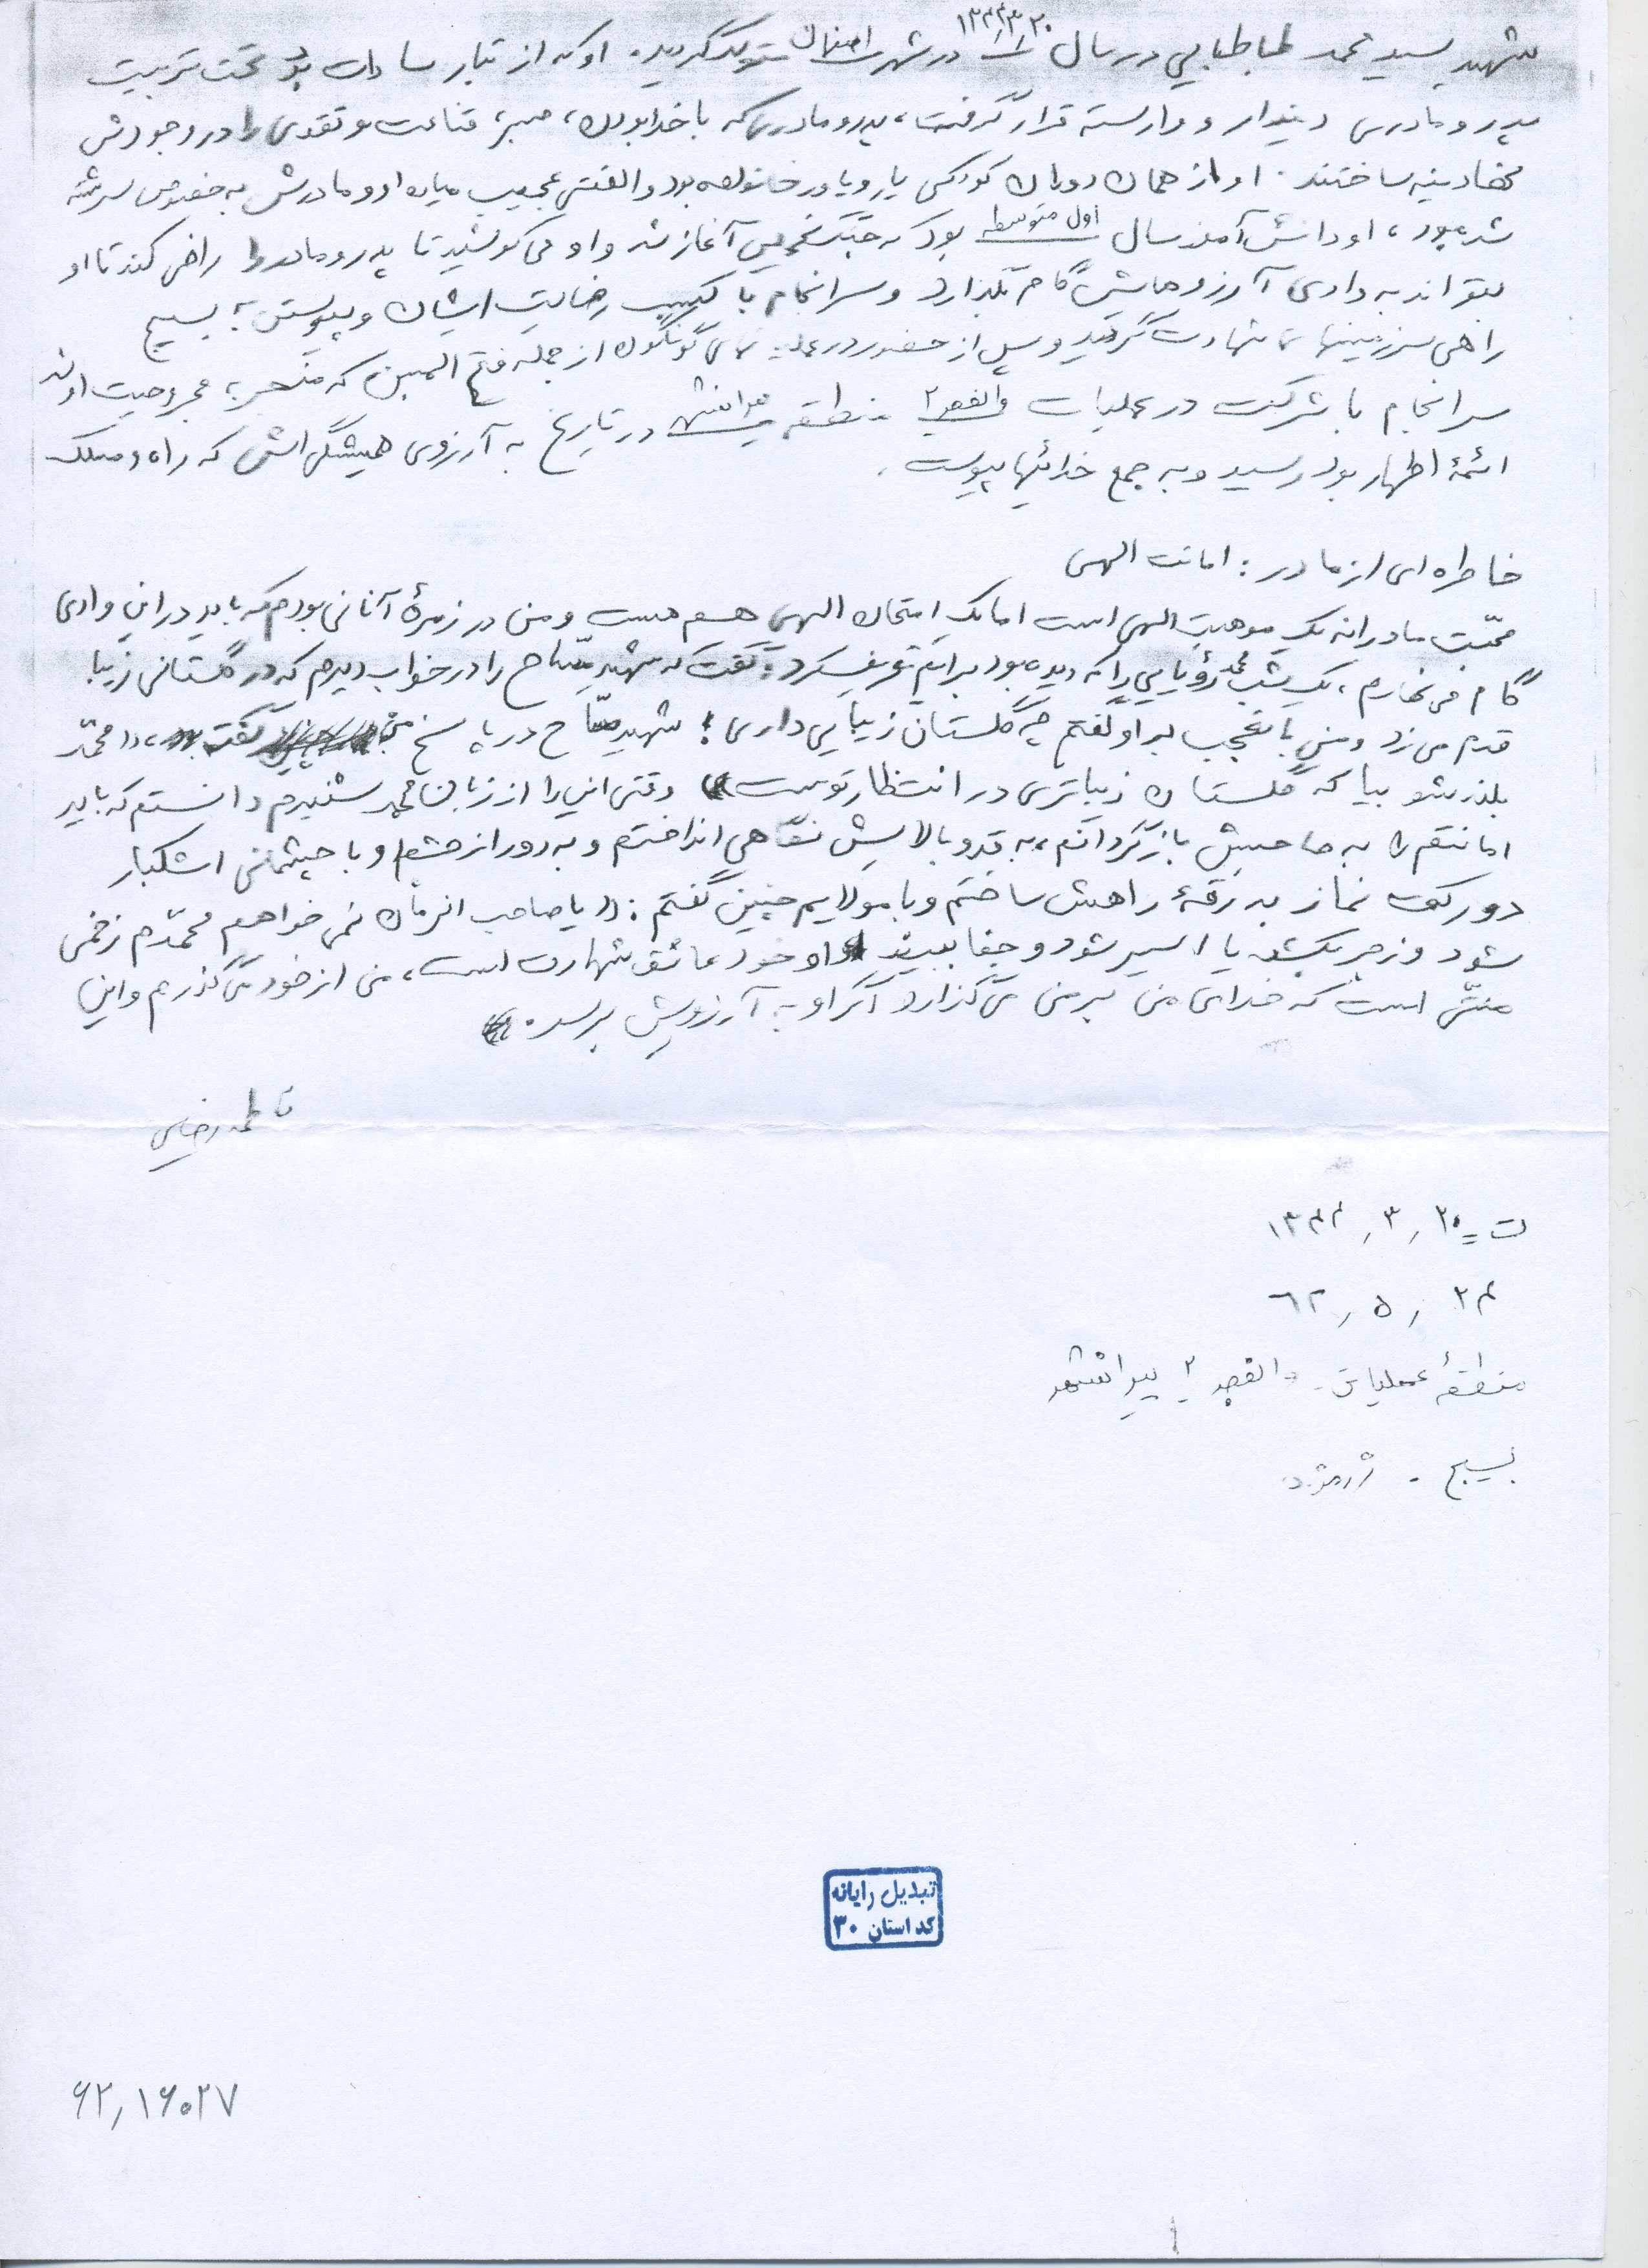 شهید سید محمد طباطبایی در سال ۱۳۴۴/۳/۲۰ در شهر اصفهان متولد گردید. او که از تبار سادات بود تحت تربیت
پدر و مادری دیندار و وارسته قرار گرفت، پدر و مادری که با خدا بودن، صبر، قناعت و تقوی را در وجودش
نهادینه ساختند. او از همان دوران کودکی یار و یاور خانواده بود و الفتی عجیب میان او و مادرش به خصوص سرشته
شده بود، او دانش آموز سال اول متوسطه بود که جنگ تحمیلی آغاز شد و او می کوشید تا پدر و مادر را راضی کند تا او
بتواند به وادی آرزوهایش گام بگذارد و سرانجام با کسب رضایت ایشان و پیوستن به بسیج
راهی سرزمینهای شهادت گردید و پس از حضور در عملیات های گوناگون از جمله فتح المبین که منجر به مجروحیت او شد
سرانجام با شرکت در عملیات والفجر ۲ منطقه پیرانشهر در تاریخ به آرزوی همیشگی اش که راه و مسلک
ائمهٔ اطهار بود رسید و به جمع خدائیها پیوست.
خاطره ای از مادر: امانت الهی
محبّت مادرانه یک موهبت الهی است اما یک امتحان الهی هم هست و من در زمرهٔ آنانی بودم که باید در این وادی
گام می نهادم، یک شب محمد رؤیایی را که دیده بود برایم تعریف کرد: گفت که شهید مسّاح را در خواب دیدم که در گلستانی زیبا
قدم می زد و من با تعجب به او گفتم چه گلستان زیبایی داری! شهید مسّاح در پاسخ من گفت: «محمّد
بلند شو بیا که گلستان زیباتری در انتظار توست» وقتی این را از زبان محمد شنیدم دانستم که باید
امانتم را به صاحبش بازگردانم، به قد و بالایش نگاهی انداختم و به دور از چشم او با چشمانی اشکبار
دو رکعت نماز بدرقهٔ راهش ساختم و با مولایم چنین گفتم: «یا صاحب الزمان نمی خواهم محمّدم زخمی
شود و زجر بکشد یا اسیر شود و جفا ببیند او خود عاشق شهادت است، من از خود می گذرم و این
منتّی است که خدای من بر من می گذارد اگر او به آرزویش برسد.»
فاطمه رضایی
ت = ۱۳۴۴/۳/۲۰
۶۲/۵/۲۴
منطقهٔ عملیاتی والفجر ۲ پیرانشهر
بسیج -
تبدیل رایانه
کد استان ۳۰
۶۲/۱۶۰۲۷